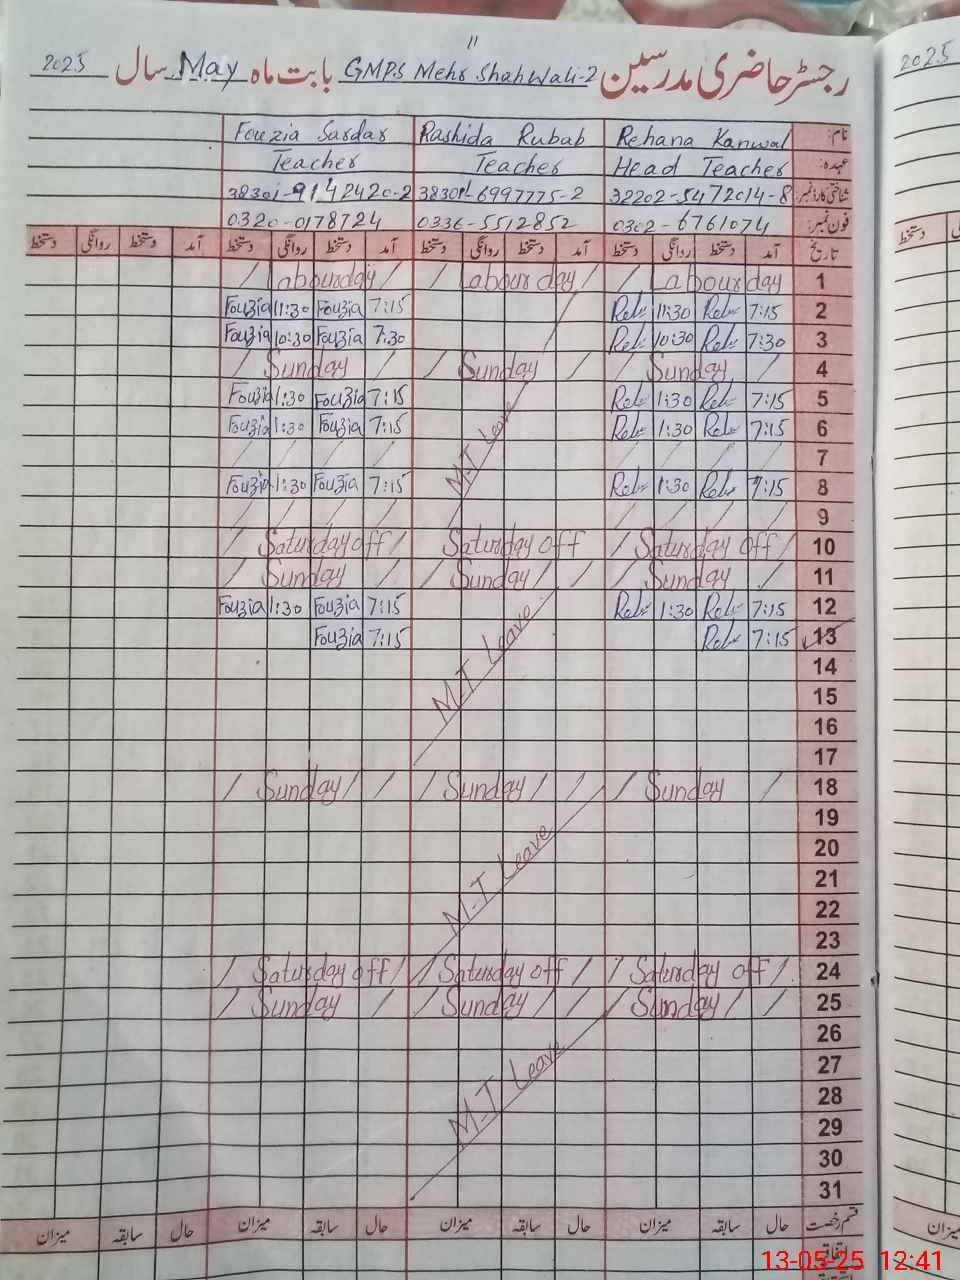 11
رجسٹر حاضری مدرسین GMPS Mehr Shahwali-2 بابت ماہ May سال 2025
2025
نام: Rehana Kanwal Rashida Rubab Fouzia Sardar
عہدہ: Head Teacher Teacher Teacher
شناختی کارڈ نمبر: 32202-5472014-8 38301-6997775-2 38301-9142420-2
فون نمبر: 0302-6761074 0336-5512852 0320-0178724
تاریخ آمد دستخط روانگی دستخط آمد دستخط روانگی دستخط آمد دستخط روانگی دستخط آمد دستخط روانگی دستخط
دستخط
1 Labour day / Labour day / Labour day /
2 7:15 11:30 7:15 Fouzia 11:30 Fouzia
3 7:30 10:30 7:30 Fouzia 10:30 Fouzia
4 / Sunday / Sunday / Sunday /
5 7:15 1:30 7:15 Fouzia 1:30 Fouzia
6 7:15 1:30 7:15 Fouzia 1:30 Fouzia
M-T Leave
7 / / / / / / / /
8 7:15 1:30 7:15 Fouzia 1:30 Fouzia
9 / / / / / / / /
10 / Saturday off / Saturday off / Saturday off /
11 / Sunday / Sunday / / Sunday /
12 7:15 1:30 7:15 Fouzia 1:30 Fouzia
13 7:15 7:15 Fouzia
M-T Leave
14
15
16
17
18 / Sunday / / / Sunday / / / Sunday /
19
20
M-T Leave
21
22
23
24 / Saturday off / / Saturday off / / Saturday off /
25 / / Sunday / / / Sunday / / Sunday /
26
27
M-T Leave
28
29
30
31
قسم رخصت حال سابقہ میزان حال سابقہ میزان حال سابقہ میزان حال سابقہ میزان
اتفاقیہ
13-05-25 12:41